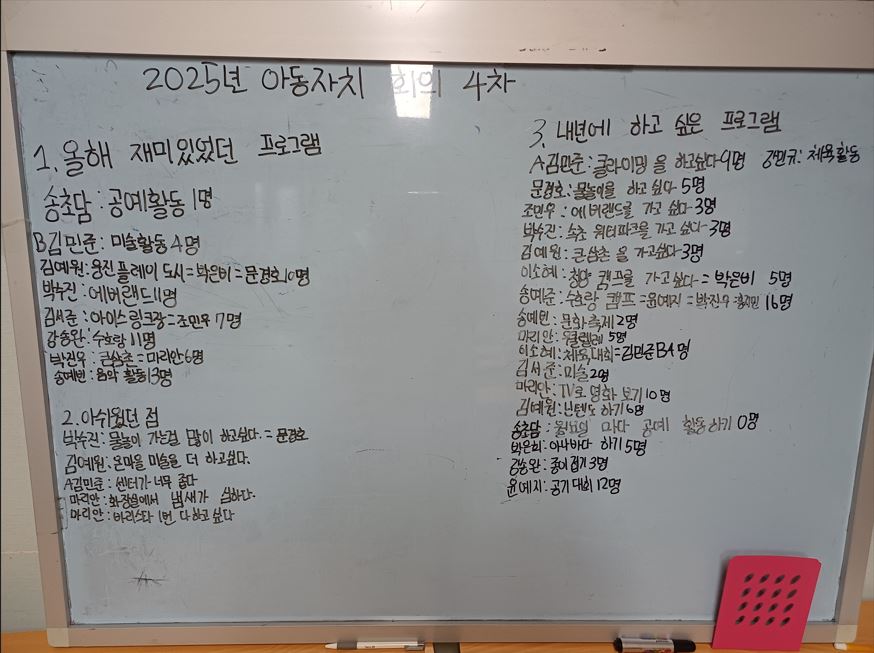 2025년 아동자치 회의 4차
1. 올해 재미있었던 프로그램
송초담 : 공예활동 1명
B김민준 : 미술활동 4명
김예원 : 웅진 플레이 도시 = 박은비 = 문경호 10명
박수진 : 에버랜드 11명
김서준 : 아이스링크장 = 조민우 7명
강송완 : 수호랑 11명
박진우 : 큰삼촌 = 마리안 6명
송예빈 : 음악 활동 13명
2. 아쉬웠던 점
박수진 : 물놀이 가는걸 많이 하고싶다. = 문경호
김예원 : 온마을 미술을 더 하고싶다.
A김민준 : 센터가 너무 좁다
마리안 : 화장실에서 냄새가 심하다.
마리안 : 바리스타 1번 다 하고 싶다
3. 내년에 하고 싶은 프로그램
A김민준 : 클라이밍 을 하고싶다 9명 강민규 : 체육활동
문경호 : 물놀이를 하고 싶다 5명
조민우 : 에버랜드를 가고 싶다 3명
박수진 : 속초 워터파크를 가고 싶다 3명
김예원 : 큰삼촌 을 가고싶다 3명
이소혜 : 청양 캠프를 가고 싶다 = 박은비 5명
송예준 : 수호랑 캠프 = 윤예지 = 박진우 = 16명
송예빈 : 문화축제 2명
마리안 : 우쿨렐레 5명
이소혜 : 체육대회 = 김민준B 4명
김서준 : 미술 2명
마리안 : TV로 영화 보기 10명
김예원 : 닌텐도 하기 6명
송초담 : 월요일 마다 공예 활동하기 0명
박은희 : 아나바다 하기 5명
강송완 : 종이접기 3명
윤예지 : 공기대회 12명